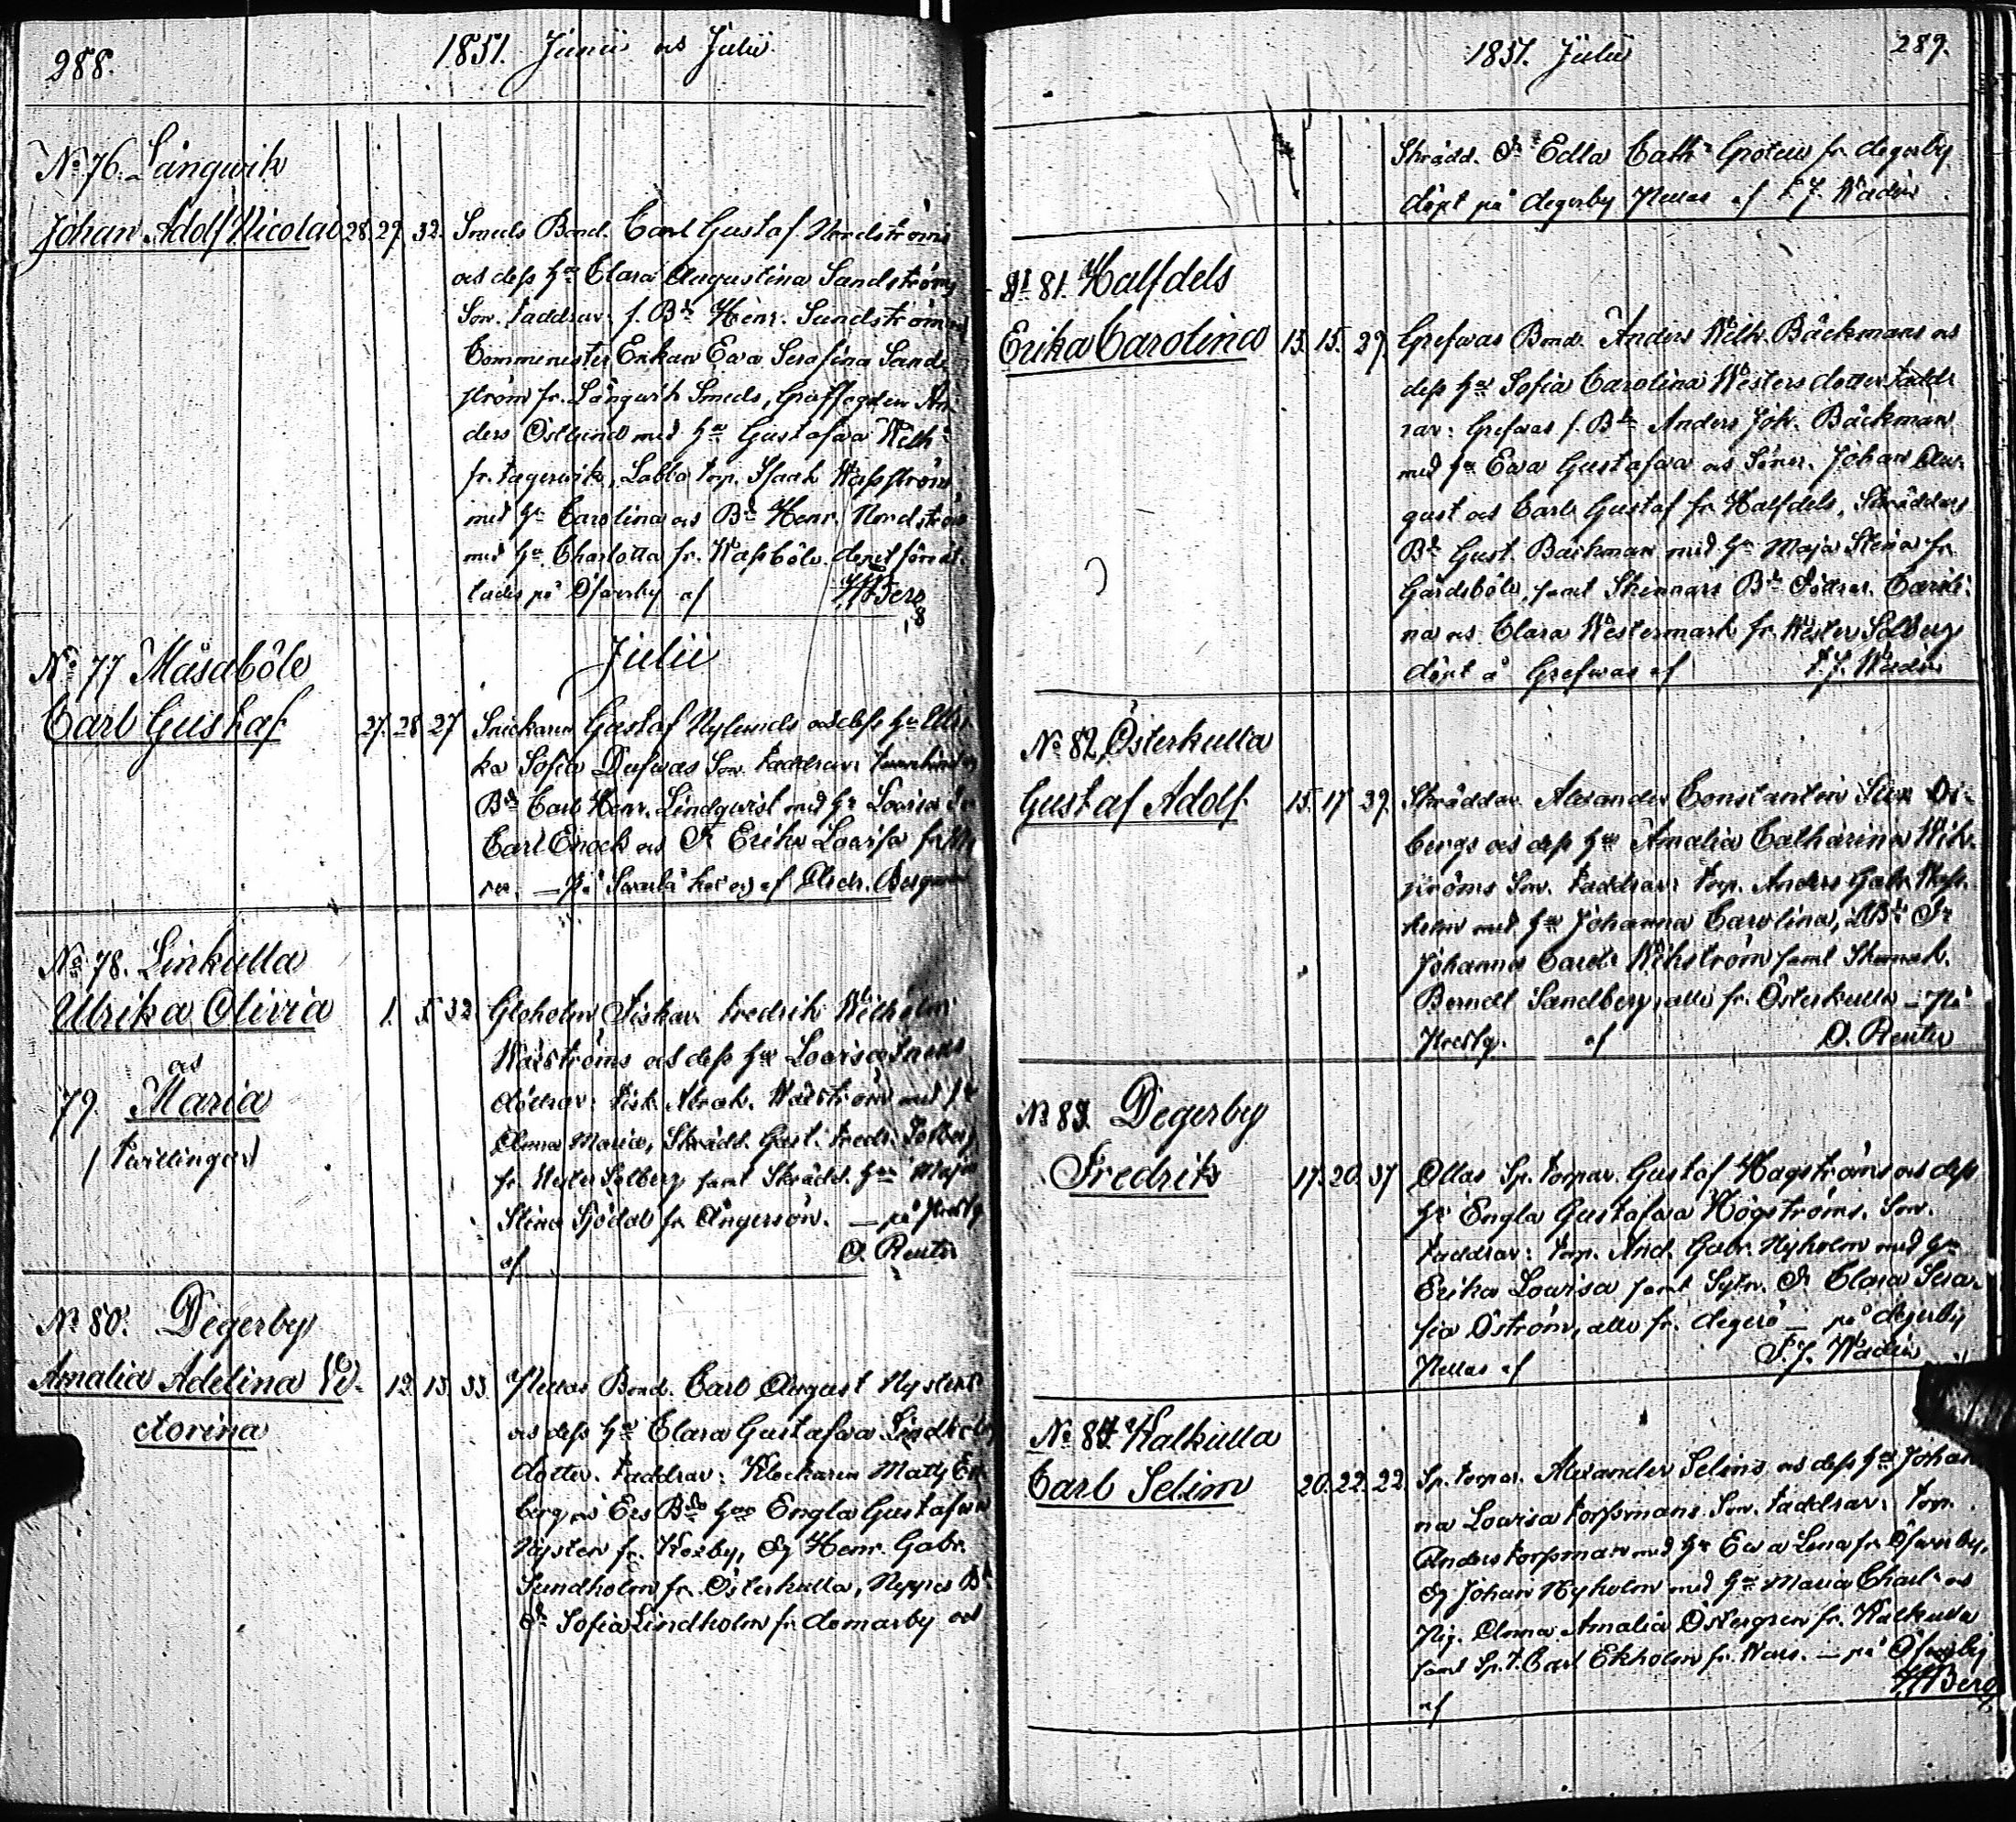 288.
1851. Junii och Julii
No 76. Långwik
Johan Adolf Nicolai 28. 29. 32. Smeds Bond. Carl Gustaf Nordströms
och dess Hu Clara Augustina Sandströms
Son. Faddrar: f. Bd Henr. Sundström
Enkan Ewa Serafina Sand-
ström fr. Långwik Smeds, An-
ders Östlund med Hu Gustafwa Wilh:
fr. Fagerwik, Labba torp. Isaak
med Hu Carolina och Bd Henr. Nordström
med Hu Charlotta fr.
på Ofwerby af HBerg
Julii
No 77 Måsaböle
Carl Gustaf 27. 28 27 Snickaren Gustaf Nylunds och dess Hu Ulri-
ka Sofia Dufwas Son. Faddrar:
Bd Carl Henr. Lindqwist med Hu Lowisa
Carl Enoch och Dr Erika Lowisa
— På af Alexdr. Bergman
No 78. Linkulla
Ulrika Olivia 1. 5 32 Gloholm Fiskar. Fredrik Wilhelm
och
Wårströms och dess Hu Lowisa
79. Maria
döttrar: Fisk. Abrah. Wårström med Hu
(Twillingar)
Anna Maria, Skrädd. Gust. Fredr. Solberg
fr. Wester Solberg samt Skrädd. Hu Maja
Stina Sjödal fr. Ångersön. — på Prestg
af O. Reuter
No 80. Degerby
Amalia Adelina Vi- 12. 13. 33. Nellas Bond. Carl August Nysten
ctorina
och dess Hu Clara Gustafwa Lindholms
dotter. Faddrar: Klockaren Matts
berg, Ers Bds Hu Engla Gustafwa
Nysten fr. Koxby, Dg Henr. Gabr.
Sundholm fr. Österkulla, Reppas Bd
Dr Sofia Lindholm fr. Domarby och
1851. Julii
289.
Skrädd. Dr Edla Cath: Grotell fr. Degerby
döpt på Degerby Nellas af F. J. Wadén
No 81. Halfdels
Erika Carolina 13. 15. 29. Grefwas Bond. Anders Wilh. Bäckmans och
dess Hu Sofia Carolina Westers dotter. Fadd-
rar: Grefwas f. Bd Anders Joh. Bäckman
med Hu Ewa Gustafwa och Söner. Johan Au-
gust och Carl Gustaf fr. Halfdels, Skräddars
Bd Gust. Bäckman med Hu Maja Stina fr.
Gårdsböle, samt Skinnars Bd Döttrar. Caroli-
na och Clara Westermark fr. Wester Solberg
döpt å Grefwas af F. J. Wadén
No 82. Österkulla
Gustaf Adolf 15. 17 39. Skräddar. Alexander Constantin
bergs och dess Hu Amalia Catharina Wik-
ströms Son. Faddrar: Torp. Anders Gabr.
med Hu Johanna Carolina, Dr
Johanna Carol: Wikström samt Skomak.
Berndt Sandberg, alla fr. Österkulla — På
Prestg. af O. Reuter
No 83. Degerby
Fredrik 17. 20. 37 Ollas Sp. torpar. Gustaf Hagströms och dess
Hu Engla Gustafwa Högströms Son.
Faddrar: Torp. And. Gabr. Nyholm med Hu
Erika Lowisa samt Sytn. Dr Clara Sera-
fia Öström, alla fr. Degerö — på Degerby
Nellas af F. J. Wadén
No 84. Kalkulla
Carl Selim 20. 22. 22. Sp. torpar. Alexander Selins och dess Hu Johan-
na Lowisa Forssmans Son. Faddrar: Torp.
Anders Forssman med Hu Ewa Lena fr. Ofwerby,
Dg Johan Nyholm med Hu Maria Charl: och
Pig. Anna Amalia Östergren fr. Kalkulla
samt Sp. t. Carl Ekholm fr. Wars. — på Ofwerby
af HBerg